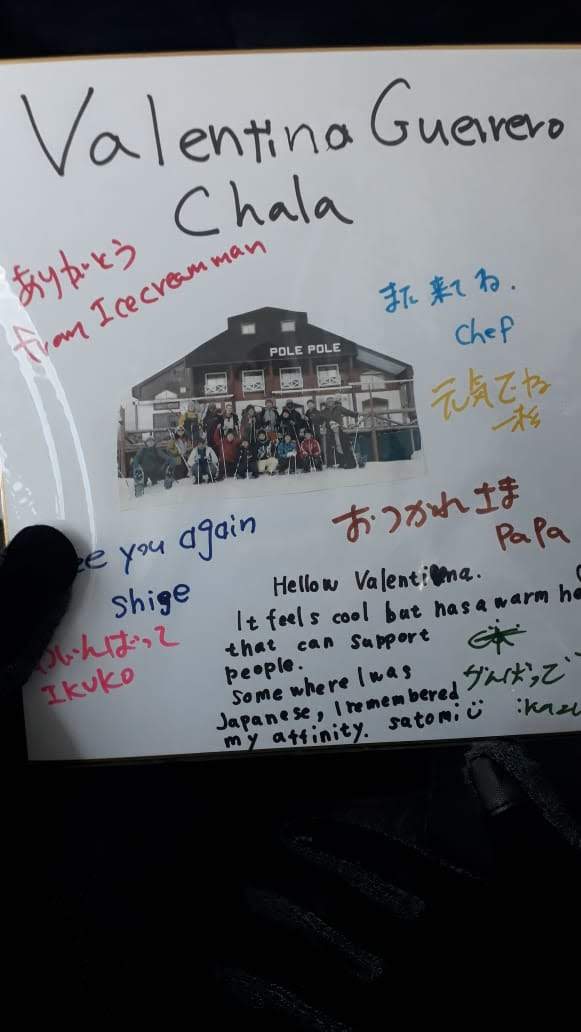 Valentina Guerrero
Chala
ありがとう
from Icecream man
また来てね.
chef
POLE POLE
元気でね
おつかれさま
PaPa
ee you again
shige
がんばって
IKUKO
Hellow Valentina.
It feels cool but has a warm he
that can support
people.
some where I was
Japanese, I remembered
my affinity. satomi
がんばって